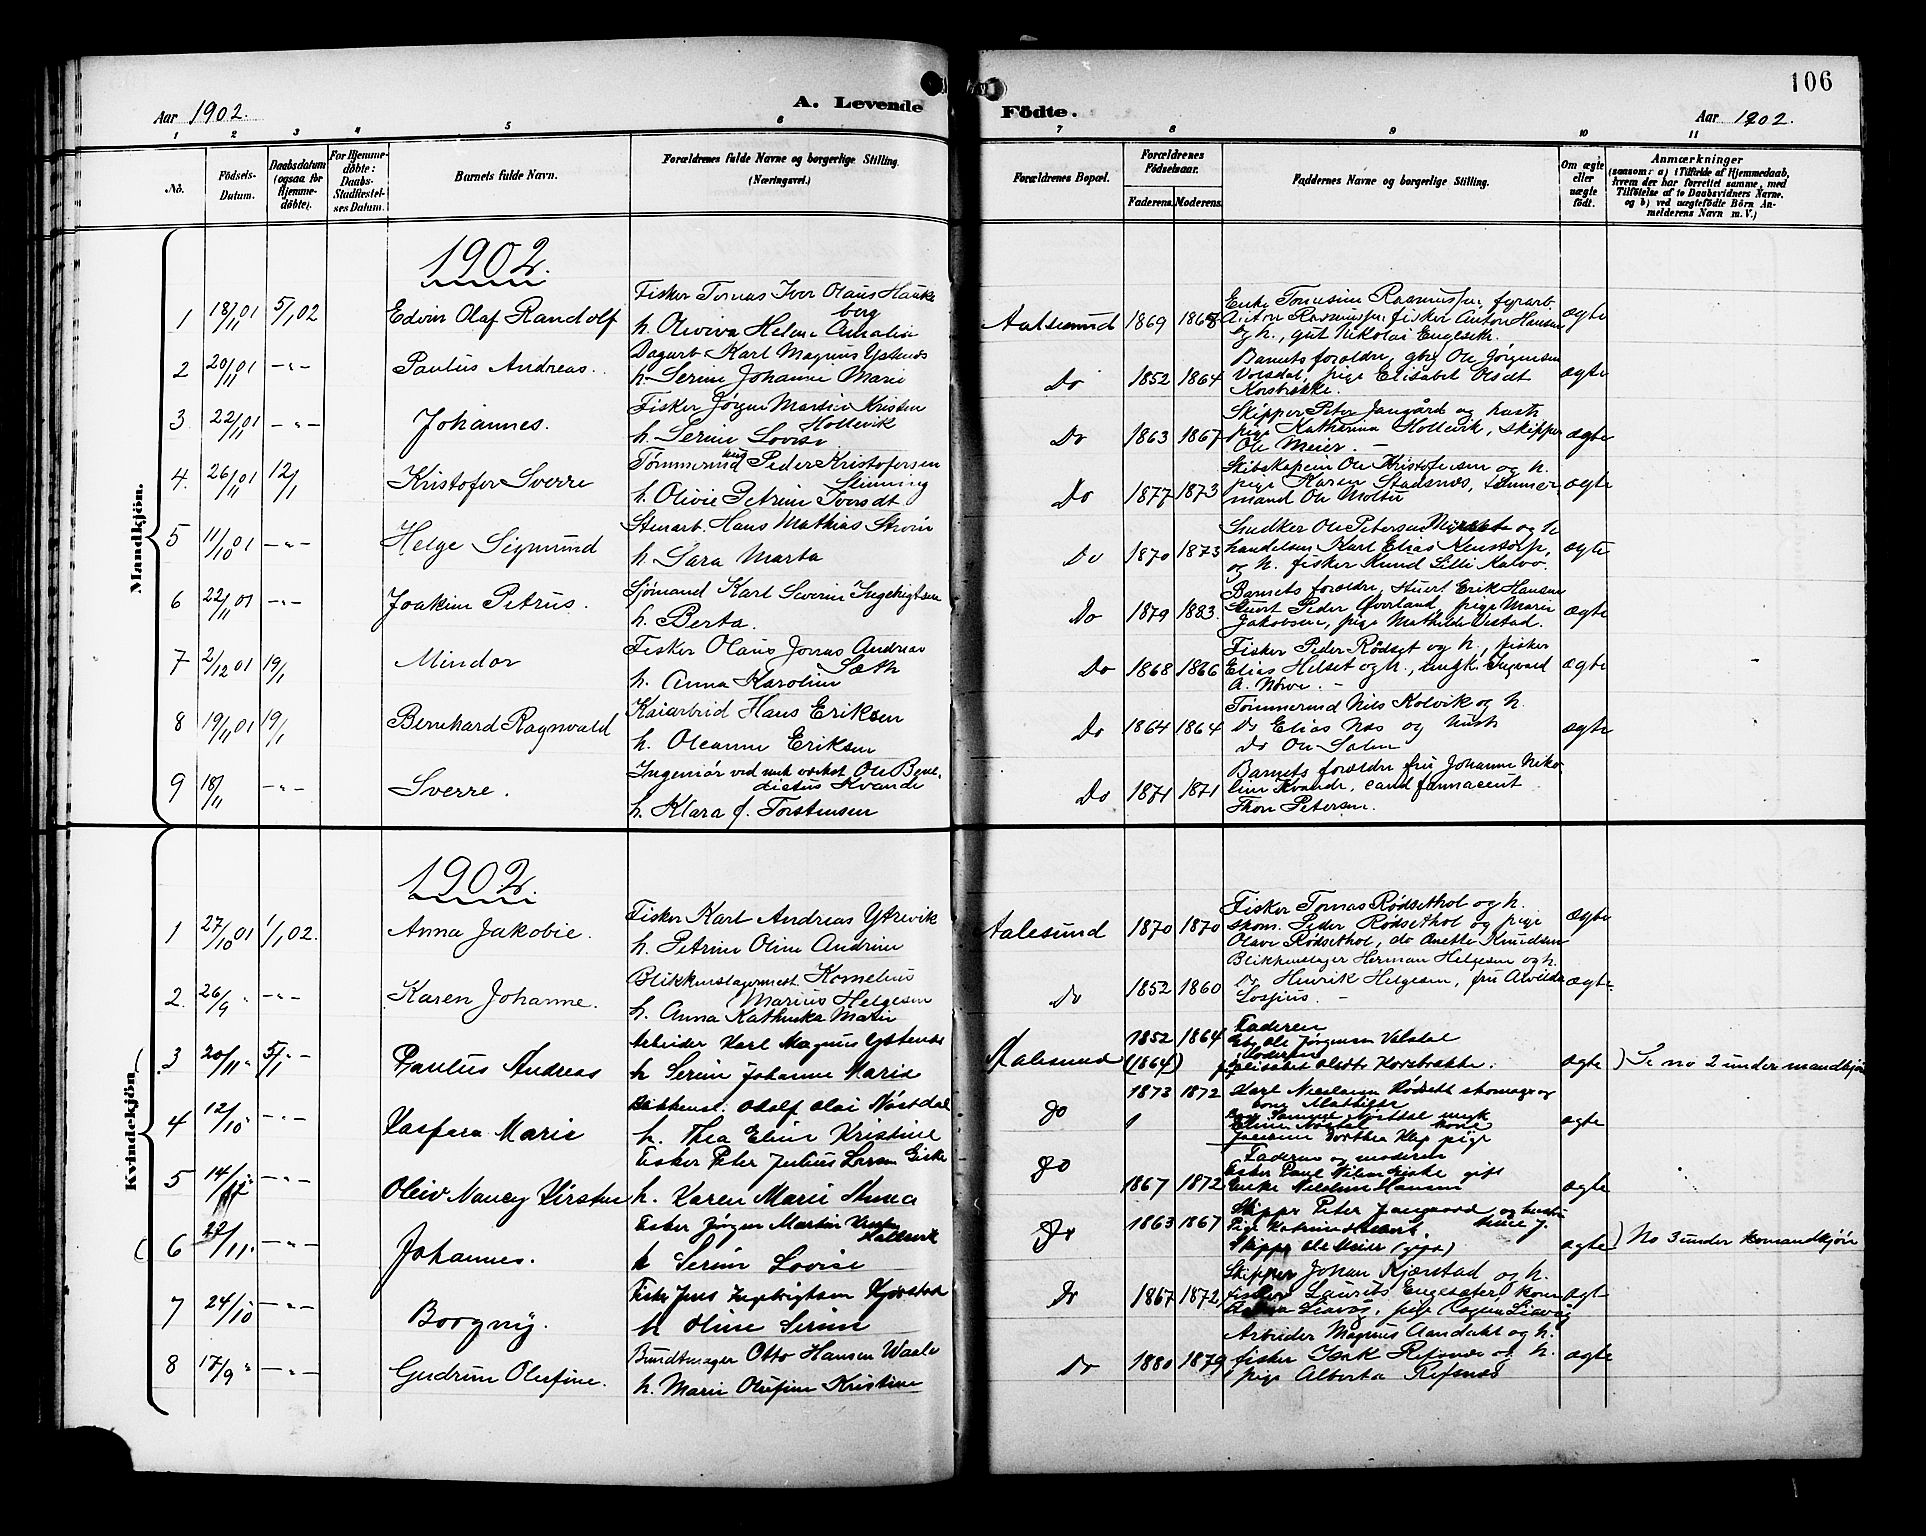 106
Aar 1902. A. Levende Födte. Aar 1902.
1 2 3 4 5 6 7 8 9 10 11
No. Födsels-Datum. Daabsdatum (ogsaa for Hjemmedöbte). For Hjemmedöbte: Daabs-Stadfæstelses Datum. Barnets fulde Navn. Forældrenes fulde Navne og borgerlige Stilling. (Næringsvei.) Forældrenes Bopæl. Forældrenes Födselsaar. Faderens. Moderens. Faddernes Navne og borgerlige Stilling. Om ægte eller uægte födt. Anmærkninger (saasom: a) i Tilfælde af Hjemmedaab, hvem der har forrettet samme, med Tilföielse af to Daabsvidners Navne. og b) ved uægtefödte Börn Anmelderens Navn m. V.)
Mandkjön.
1902.
1 18/11 01 5/1 02 Edvin Olaf Randolf Fisker Tomas Iver Olaus Haukeberg h. Oliviva Helene Amalie Aalesund 1869 1868 Enke Tomasine Rasmussen, fyrarb. Anton Rasmussen, fisker Anton Hansen og h., gut Nikolai Engeseth. ægte
2 20/11 01 -"- Paulus Andreas. Dagarb. Karl Magnus Ystenæs h. Serine Johanne Marie Do 1852 1864 Barnets forældre, gbr Ole Jørgensen Volsdal, pige Elisabet Olsdt Korsbrække. ægte
3 22/11 01 -"- Johannes. Fisker Jørgen Martin Kristen Hollevik h. Serine Lovise Do 1863 1867 Skipper Peter Jangård og hustr. pige Katharina Hollevik, skipper Ole Meier. - ægte
4. 26/11 01 12/1 Kristofer Sverre Tømmermand Peder Kristofersen Skinning h. Olivie Petrine Iversdt Do 1877 1873 Skibskaptein Ole Kristofersen og h. pige Karen Stadsnæs, tømmermand Ole Moltu ægte
5 11/10 01 -"- Helge Sigmund Stenarb. Hans Mathias Strøm h. Sara Marta Do 1870 1873 Snedker Ole Petersen og h. handelsm. Karl Elias og h. fisker Knud Kalvø. ægte
6 22/11 01 -"- Joakim Petrus. Sjømand Karl Severin Ingebrigtsen h. Berta. Do 1879 1883. Barnets forældre, stuert Erik Hansen stuert Peder Øverland, pige Marie Jakobsen, pige Mathilde Vestad. ægte
7 2/12 01 19/1 Mindor Fisker Olaus Jonas Andreas Sæth h. Anna Karoline Do 1868 1866 Fisker Peder Rødset og h., fisker Elias Helset og h., ungk. Sigvard A. Nørve. - ægte
8 19/11 01 19/1 Bernhard Ragnvald Kaiarbeid Hans Eriksen h. Oleanne Eriksen Do 1864 1864 Tømmermd Nils Kolvik og h. Do Elias Næs og hustr Do Ole Solem ægte
9 18/11 -"- Sverre. Ingeniør ved mek værkst Ole Benedictus Kvande h. Klara f. Torstensen Do 1871 1871 Barnets forældre fru Johanne Nikoline Kvande, cand farmacent Thor Petersen. ægte
Kvindekjön.
1902.
1 27/10 01 1/1 02. Anna Jakobie. Fisker Karl Andreas Ytrevik h. Petrine Oline Andrine Aalesund 1870 1870 Fisker Tomas Rødsethol og h. skom. Peder Rødsethol og pige Olave Rødsethol, do Anette Knudsen ægte
2. 26/9 " -"- Karen Johanne. Blikkenslagermest. Kornelius Marius Helgesen h. Anna Kathinka Marie Do 1852 1860 Blikkenslager Herman Helgesen og h. Do Henrik Helgesen, fru Alvilda Lossius. - ægte
3 20/11 " 5/1 -"- Paulus Andreas Arbeider Karl Magnus Ystenæs h Serine Johanne Marie Aalesund 1852 1864 (1864) Faderen Gbr Ole Jørgensen Volsdal Moderen pige Elisabet Olsdtr Korsbrække. ægte ) Se no 2 under mandkjøn
4 12/10 " -"- Kaspara Marie Blikkensl. Adolf Olai Nøstdal h. Thea Eline Kristine do 1873 1872 Karl Nicolaisen Rødseth skomager og kone Mathilde Samuel Nøstdal ungk Eline Nøstdal kone Dorthea Klep pige ægte
5 14/11 " -"- Oleiv Nancy Kirsten Fisker Peter Julius Larsen Giske h. Karen Marie Anna do 1867 1872 Faderen og moderen Fisker Paul Nilsen Giske gift Enke Nicoline Hansen ægte
6 22/11 " -"- Johannes. Fisker Jørgen Martin Kristen Hollevik h Serine Lovise Do 1863 1867 Skipper Peter Jangaard og hustru Pige Katrine Skipper Ole Meier (gift) ægte ) No 3 under mandkjøn
7 24/10 -"- Borgny. Fisker Jens Ingebrigtsen Kjørstad h Oline Serine Do 1867 1872 Skipper Johan Kjærstad og h. fisker Laurits Engesæter kone Liavåg, pige Liavåg ægt
8 17/9 " -"- Gudrun Olufine. Bundtmager Otto Hansen Waale h. Marie Olufine Kristine Do 1880 1879 Arbeider Magnus Aandahl og h. fisker Isak Refsnæs og h. pige Alberta Refsnæs ægte